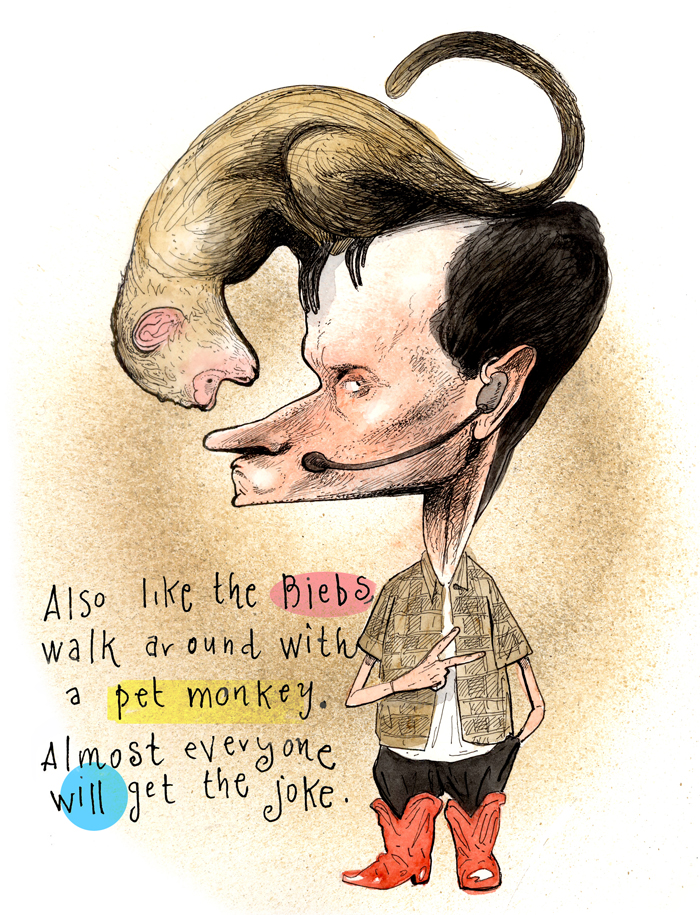 Also like the Biebs,
walk around with
a pet monkey.
Almost everyone
will get the joke.